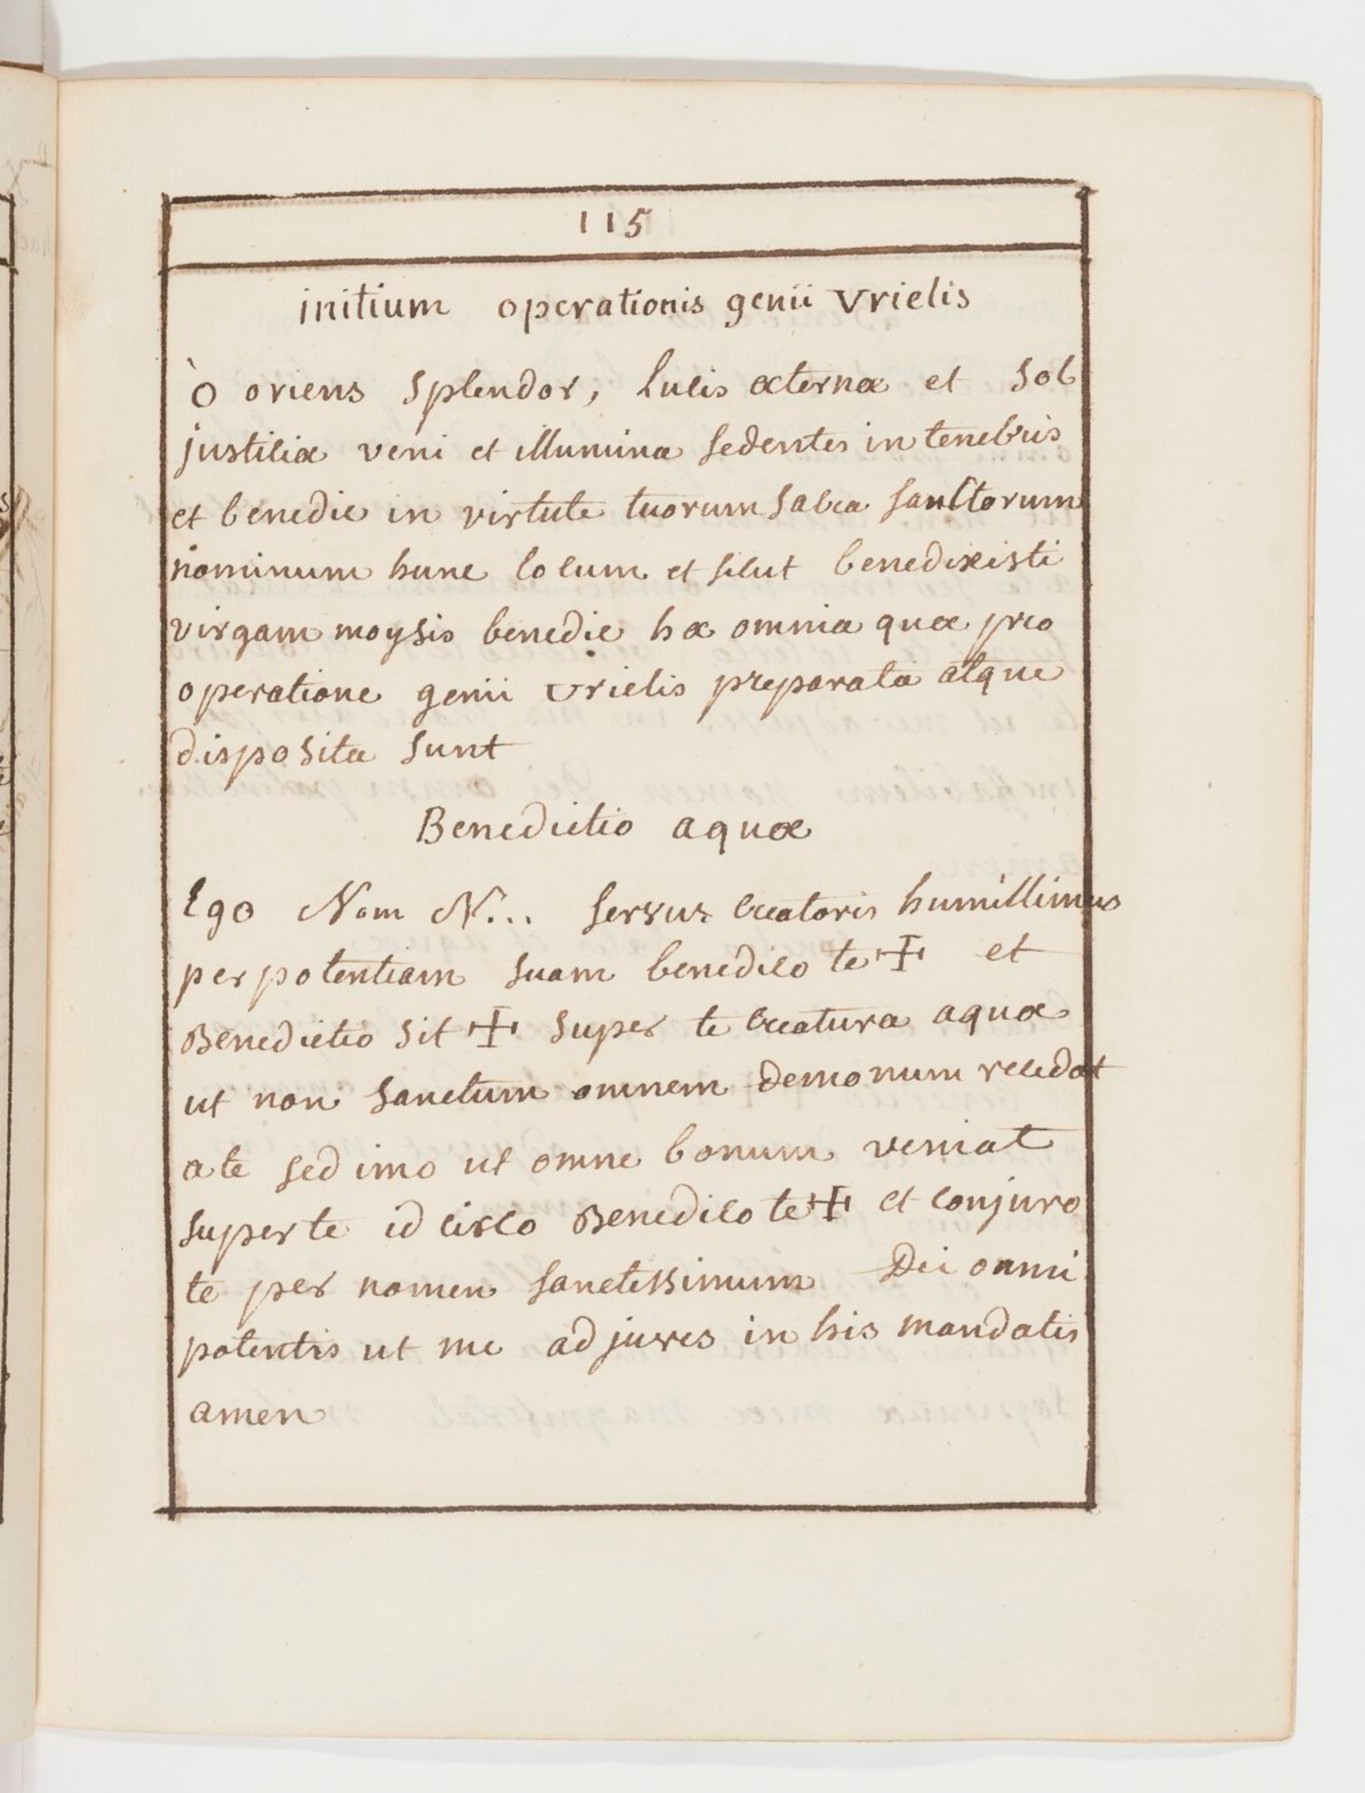 115
initium operationis genii Vrielis
ò oriens splendor, lucis æternæ et sol
justiciæ veni et illumina sedentes in tenebris
et benedic in virtute tuorum sanctorum
nominum hunc locum et sicut benedixisti
virgam moysis benedic hæ omnia quæ pro
operatione genii Vrielis preparata atque
disposita sunt
Benedictio aquæ
Ego Nom N... servus creatoris humillimus
per potentiam suam benedico te ✠ et
Benedictio sit ✠ super te creatura aquæ
ut non sanctum omnem demonum recedat
a te sed imo ut omne bonum veniat
super te id circo Benedico te ✠ et conjuro
te per nomen sanctissimum Dei omni
potentis ut me adjuves in his mandatis
amen